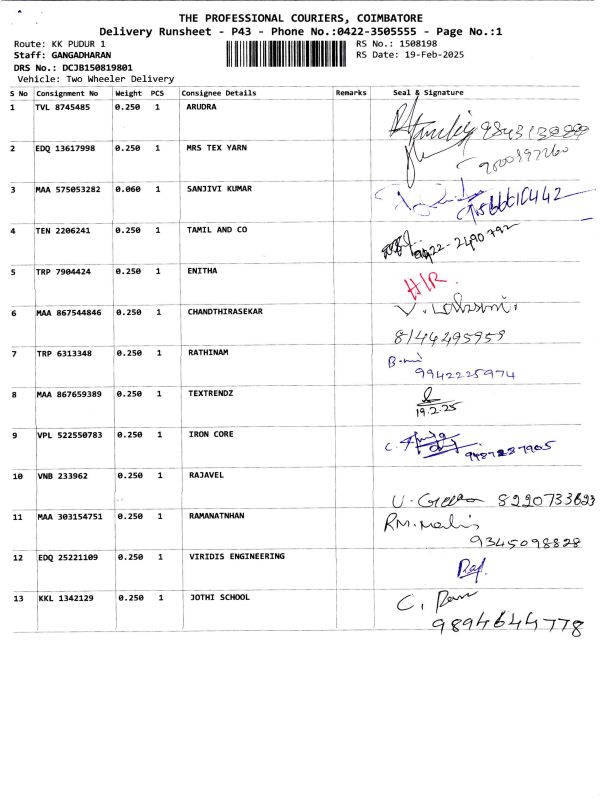 THE PROFESSIONAL COURIERS, COIMBATORE
Delivery Runsheet - P43 - Phone No.:0422-3505555 - Page No.:1
Route: KK PUDUR 1 RS No.: 1508198
Staff: GANGADHARAN RS Date: 19-Feb-2025
DRS No.: DCJB150819801
Vehicle: Two Wheeler Delivery
S No Consignment No Weight PCS Consignee Details Remarks Seal & Signature
1 TVL 8745485 0.250 1 ARUDRA
2 EDQ 13617998 0.250 1 MRS TEX YARN
3 MAA 575053282 0.060 1 SANJIVI KUMAR
4 TEN 2206241 0.250 1 TAMIL AND CO 0422-2490792
5 TRP 7904424 0.250 1 ENITHA H/R
6 MAA 867544846 0.250 1 CHANDTHIRASEKAR
8144295959
7 TRP 6313348 0.250 1 RATHINAM
9942225974
8 MAA 867659389 0.250 1 TEXTRENDZ
19.2.25
9 VPL 522550783 0.250 1 IRON CORE 9487287905
10 VNB 233962 0.250 1 RAJAVEL
8220733623
11 MAA 303154751 0.250 1 RAMANATNHAN
9345098828
12 EDQ 25221109 0.250 1 VIRIDIS ENGINEERING
13 KKL 1342129 0.250 1 JOTHI SCHOOL
9894644778